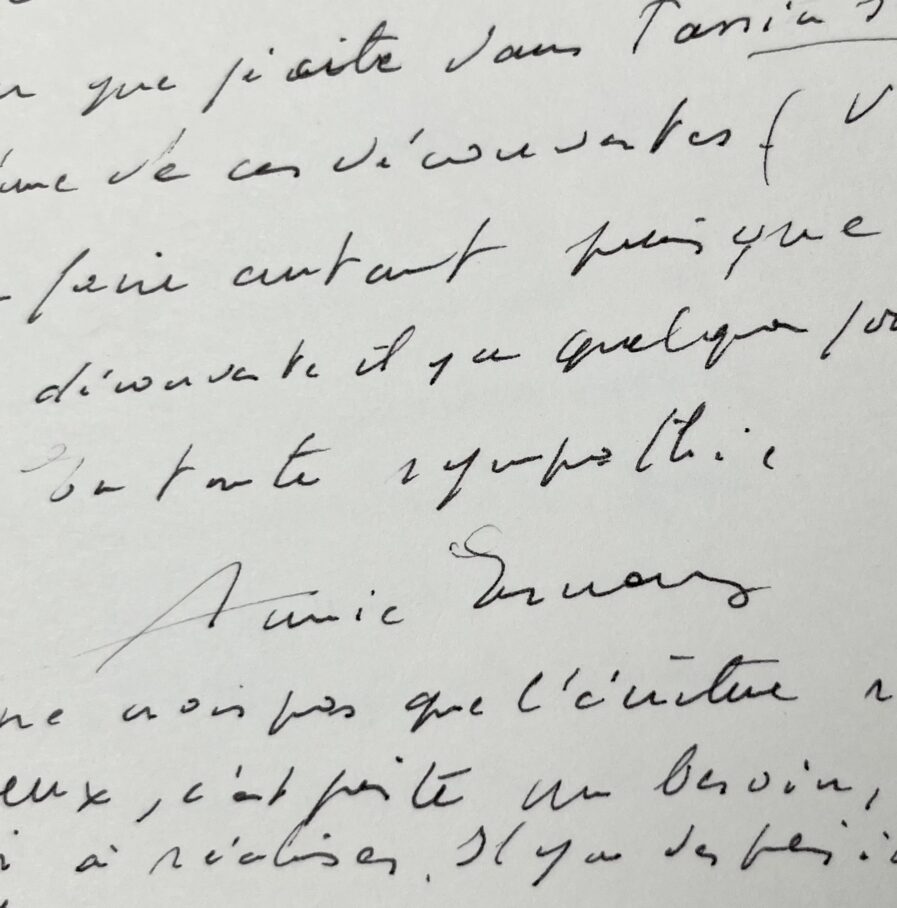 que j'ai cité dans Passion s
de ces découvertes ( V
faire autant puisque
découverte il y a quelque
En toute sympathie
Annie Ernaux
ne crois pas que l'écriture r
eux, c'est plutôt un besoin,
à réaliser. Il y a des péri